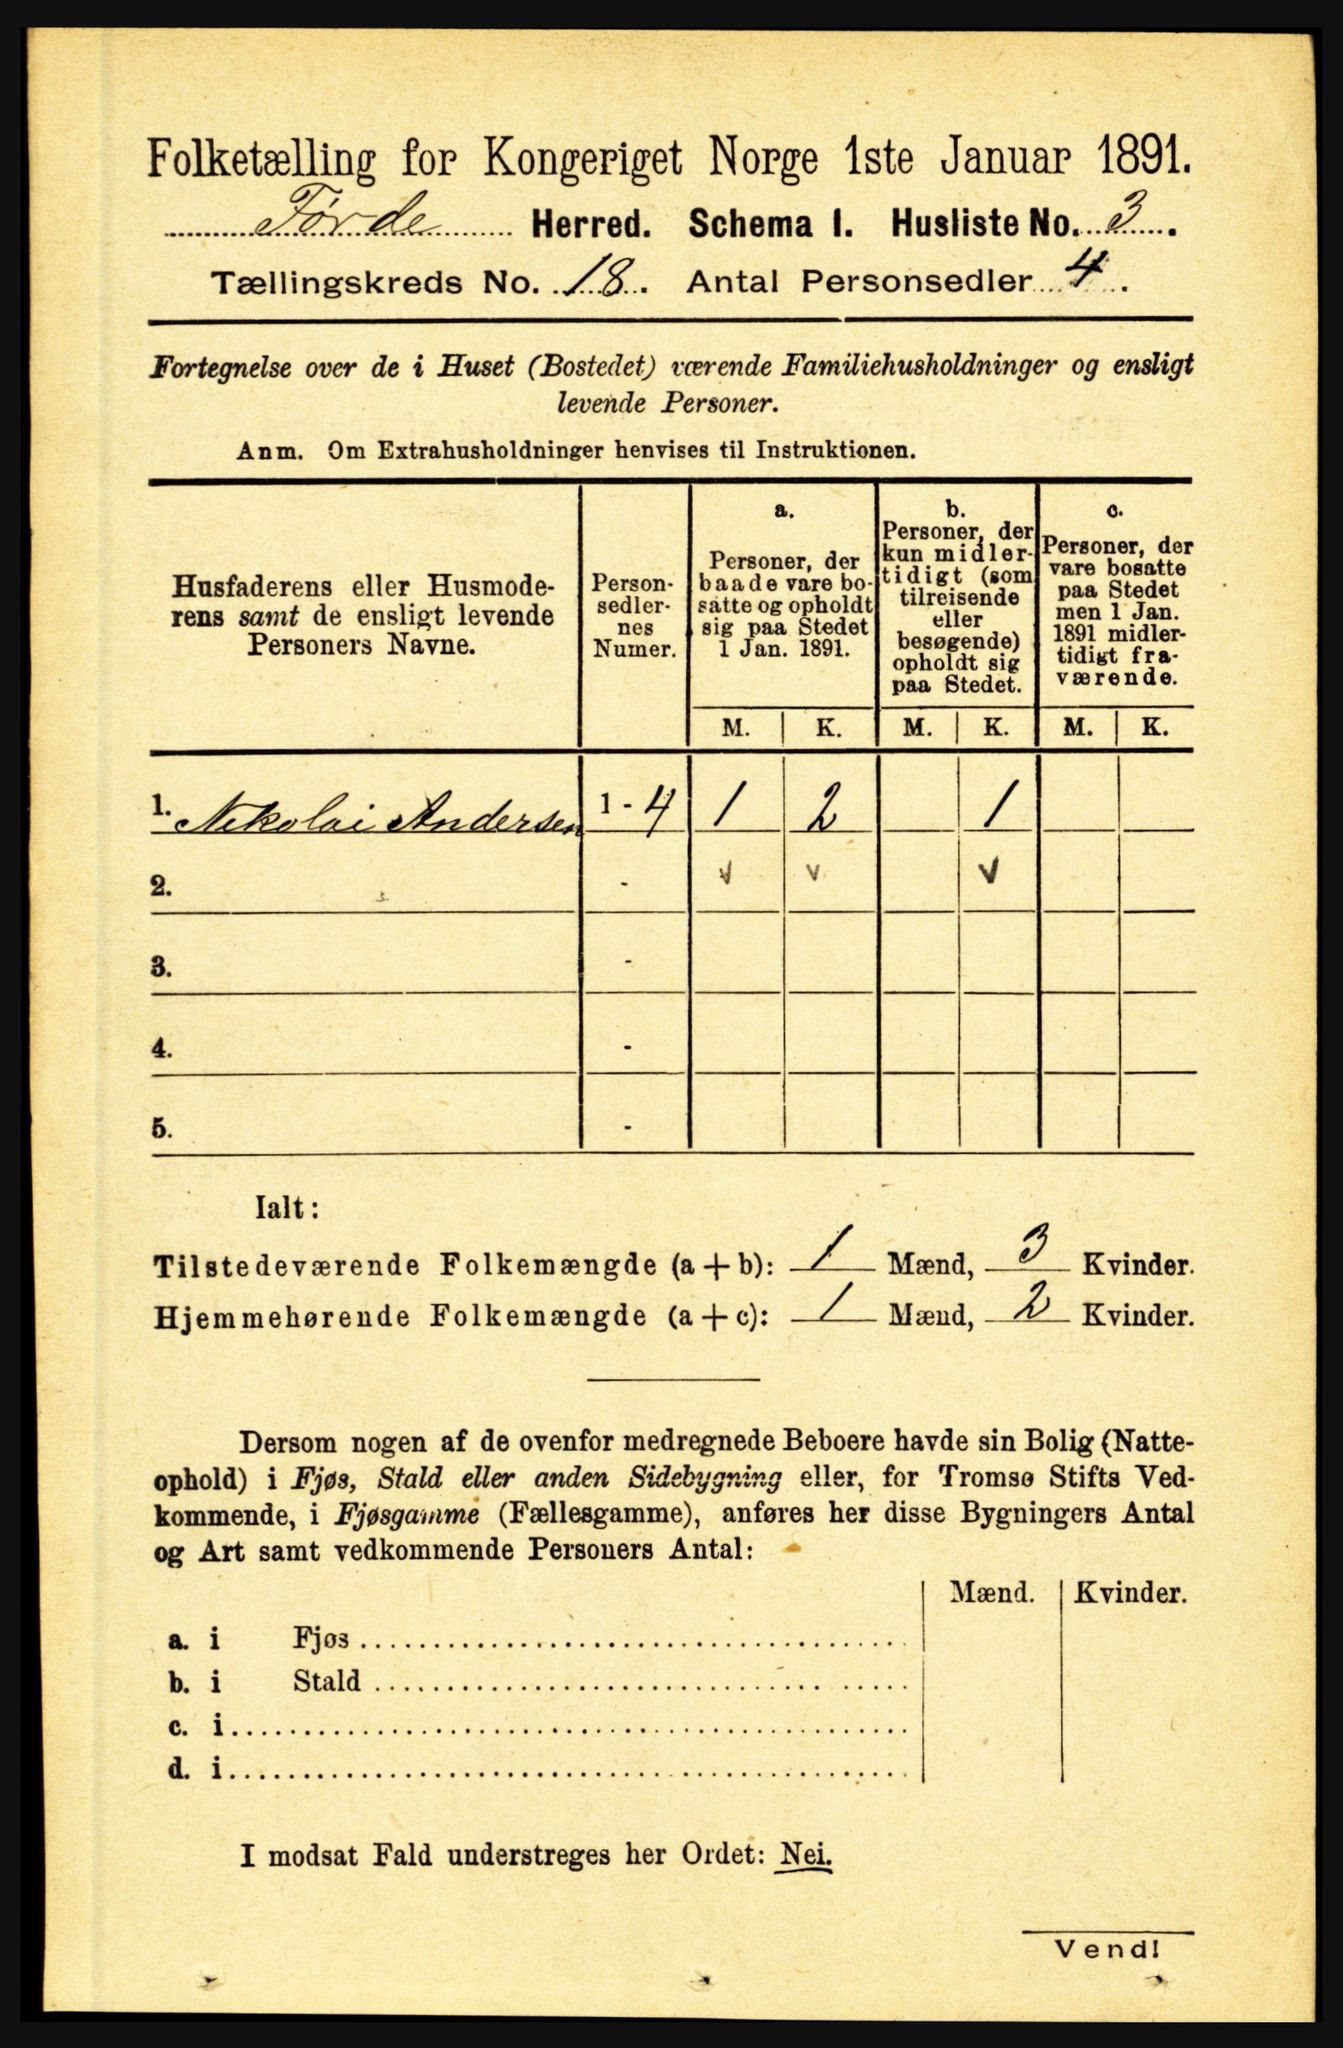 Folketælling for Kongeriget Norge 1ste Januar 1891.
Førde Herred. Schema I. Husliste No. 3.
Tællingskreds No. 18. Antal Personsedler 4.
Fortegnelse over de i Huset (Bostedet) værende Familiehusholdninger og ensligt
levende Personer.
Anm. Om Extrahusholdninger henvises til Instruktionen.
Husfaderens eller Husmode-
rens samt de ensligt levende
Personers Navne.
Person-
sedler-
nes
Numer.
a.
Personer, der
baade vare bo-
satte og opholdt
sig paa Stedet
1 Jan. 1891.
b.
Personer, der
kun midler-
tidigt (som
tilreisende
eller
besøgende)
opholdt sig
paa Stedet.
c.
Personer, der
vare bosatte
paa Stedet
men 1 Jan.
1891 midler-
tidigt fra-
værende.
M. K. M. K. M. K.
1. Nikolai Andersen 1 - 4 1 2 1
2. - v v v
3. -
4. -
5. -
Ialt:
Tilstedeværende Folkemængde (a + b): 1 Mænd, 3 Kvinder.
Hjemmehørende Folkemængde (a + c): 1 Mænd, 2 Kvinder.
Dersom nogen af de ovenfor medregnede Beboere havde sin Bolig (Natte-
ophold) i Fjøs, Stald eller anden Sidebygning eller, for Tromsø Stifts Ved-
kommende, i Fjøsgamme (Fællesgamme), anføres her disse Bygningers Antal
og Art samt vedkommende Personers Antal:
Mænd. Kvinder.
a. i Fjøs
b. i Stald
c. i
d. i
I modsat Fald understreges her Ordet: Nei.
Vend!